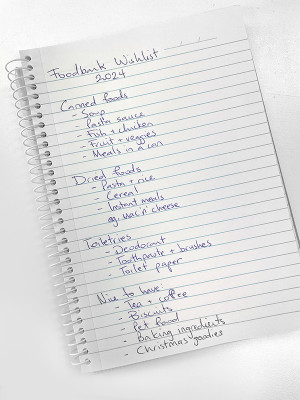 Foodbank Wishlist
2024
Canned foods
- Soup
- Pasta sauce
- Fish + chicken
- Fruit + veggies
- Meals in a can
Dried foods
- Pasta + rice
- Cereal
- Instant meals
eg. Mac n' cheese
Toiletries
- Deodorant
- Toothpaste + brushes
- Toilet paper
Nice to have:
- Tea + coffee
- Biscuits
- Pet food
- Baking ingredients
- Christmas goodies